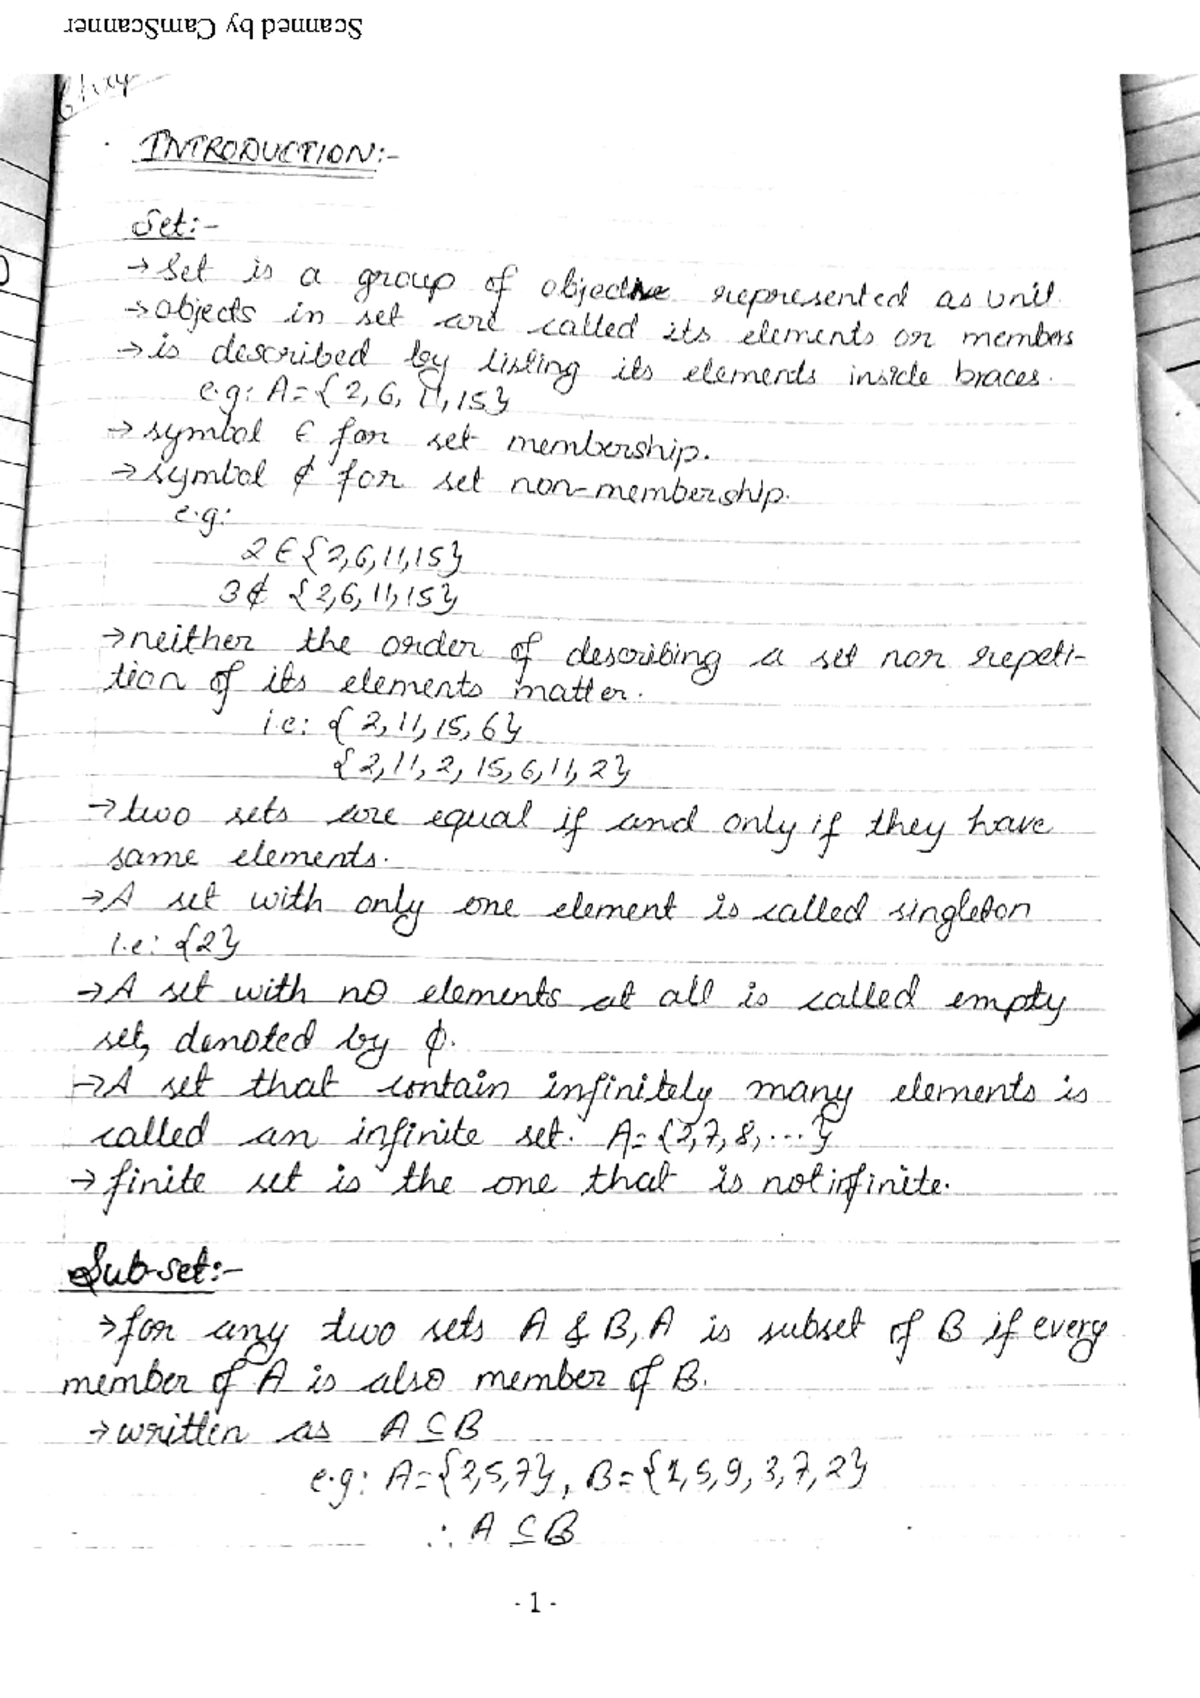 Scanned by CamScanner
INTRODUCTION:-
Set:-
→ Set is a group of objective represented as unit.
→ objects in set are called its elements or members
→ is described by listing its elements inside braces.
e.g: A={2,6,11,15}
→ symbol ∈ for set membership.
→ symbol ∉ for set non-membership.
e.g:
2 ∈ {2,6,11,15}
3 ∉ {2,6,11,15}
→ neither the order of describing a set nor repeti-
tion of its elements matter.
i.e: {2,11,15,6}
{2,11,2,15,6,11,2}
→ two sets are equal if and only if they have
same elements.
→ A set with only one element is called singleton
i.e: {2}
→ A set with no elements at all is called empty
set, denoted by ϕ.
→ A set that contain infinitely many elements is
called an infinite set. A={2,7,8,...}
→ finite set is the one that is not infinite.
Sub-set:-
→ for any two sets A & B, A is subset of B if every
member of A is also member of B.
→ written as A ⊆ B
e.g: A={2,5,7}, B={1,5,9,3,7,2}
∴ A ⊆ B
- 1 -